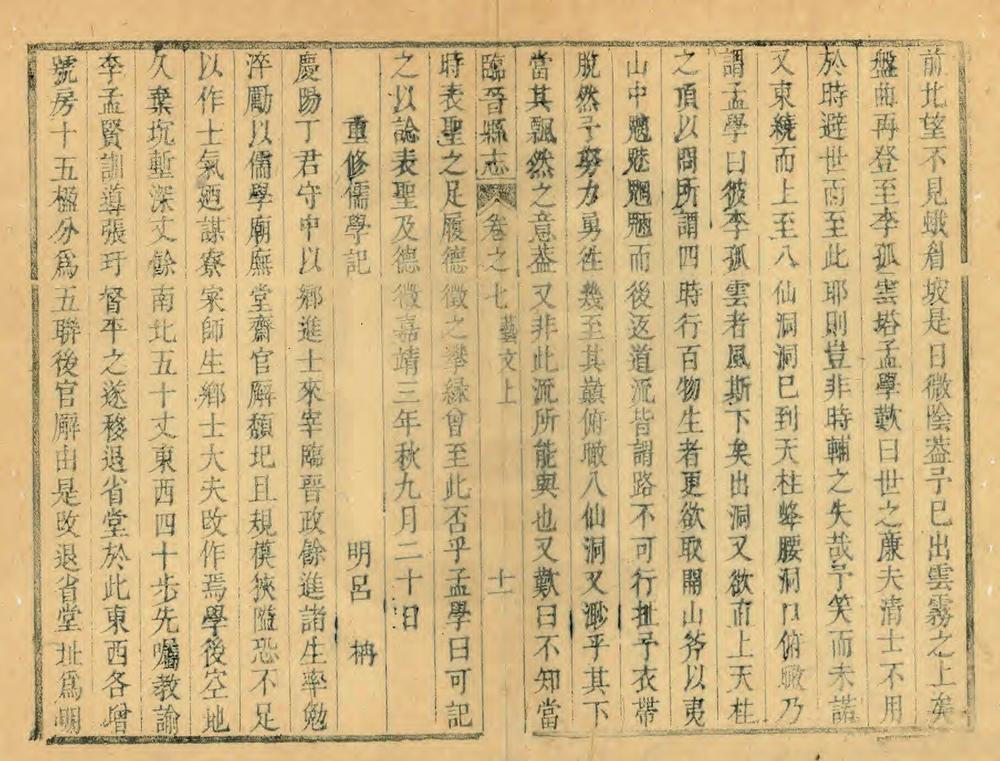 前北望不見蛾眉坡是日微陰葢予已出雲霧之上矣
盤曲再登至李孤雲塔孟學歎曰世之廉夫清士不用
於時避世而至此耶則豈非時輔之失哉予笑而未諾
又東繞而上至八仙洞洞已到天柱蜂腰洞口俯瞰乃
謂孟學曰彼李孤雲者風斯下矣出洞又欲直上天柱
之頂以問所謂四時行百物生者更欲取開山斧以夷
山中魑魅魍魎而後返道流皆謂路不可行扯予衣帶
脫然予努力勇徃幾至其巔俯瞰八仙洞又渺乎其下
當其飄然之意葢又非此流所能與也又歎曰不知當
臨晉縣志 卷之七 藝文上 十一
時表聖之足履德徵之攀緣曾至此否乎孟學曰可記
之以論表聖及德徵嘉靖三年秋九月二十日
重修儒學記 明呂柟
慶陽丁君守中以鄉進士來宰臨晉政餘進諸生率勉
淬勵以儒學廟廡堂齋官廨頹圮且規模狹隘恐不足
以作士氣廼謀寮寀師生鄉士大夫攺作焉學後空地
久棄坑塹深丈餘南北五十丈東西四十步先囑教諭
李孟賢訓導張玗督平之遂移退省堂於此東西各增
號房十五楹分爲五聯後官廨由是攺退省堂址爲明